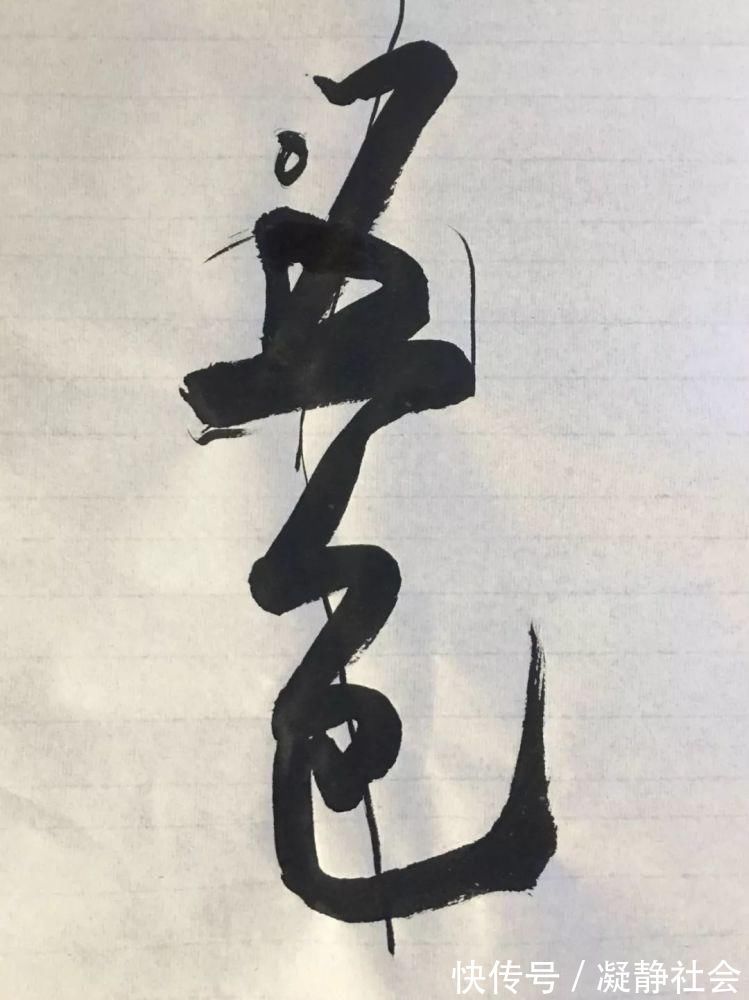 色
快传号 / 凝静社会